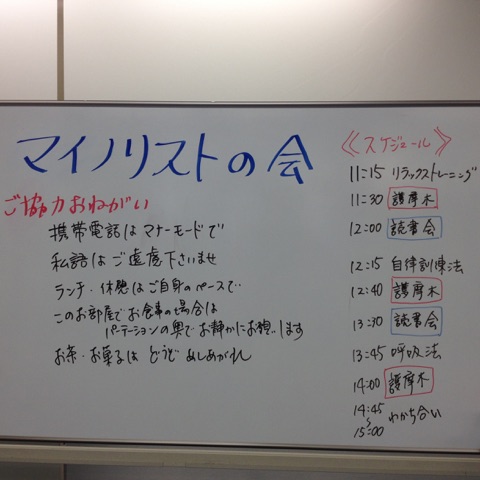 マイノリストの会
ご協力おねがい
携帯電話はマナーモードで
私語はご遠慮下さいませ
ランチ・休憩はご自身のペースで…
このお部屋でお食事の場合は
パーテーションの奥でお静かにお願いします
お茶・お菓子は どうぞ めしあがれ
《スケジュール》
11:15 リラックストレーニング
11:30 護摩木
12:00 読書会
12:15 自律訓練法
12:40 護摩木
13:30 読書会
13:45 呼吸法
14:00 護摩木
14:45
〜 わかち合い
15:00